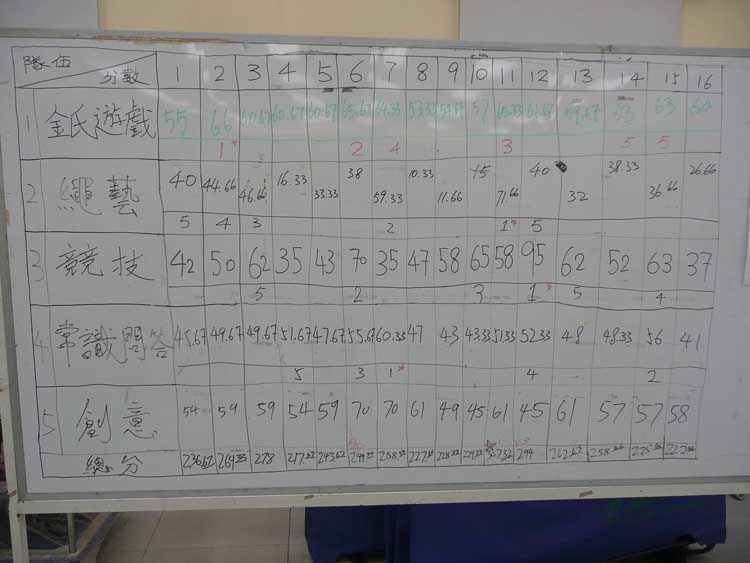 隊伍 分數 1 2 3 4 5 6 7 8 9 10 11 12 13 14 15 16
1 金氏遊戲 55 66 60.67 60.67 60.67 65.67 64.33 53.33 57 65.33 61.67 59.67 63 63 60
1* 2 4 3 5 5
2 繩藝 40 44.66 46.66 16.33 33.33 38 59.33 10.33 11.66 15 71.66 40 32 38.33 36.66 26.66
5 4 3 2 1* 5
3 競技 42 50 62 35 43 70 35 47 58 65 58 95 62 52 63 37
5 2 3 1* 5 4
4 常識問答 45.67 49.67 49.67 51.67 47.67 55.67 60.33 47 43 43.33 51.33 52.33 48 48.33 56 41
5 3 1* 4 2
5 創意 54 59 59 54 59 70 70 61 49 45 61 45 61 57 57 58
總分 236.67 269.33 278 217.67 243.67 294 262.67